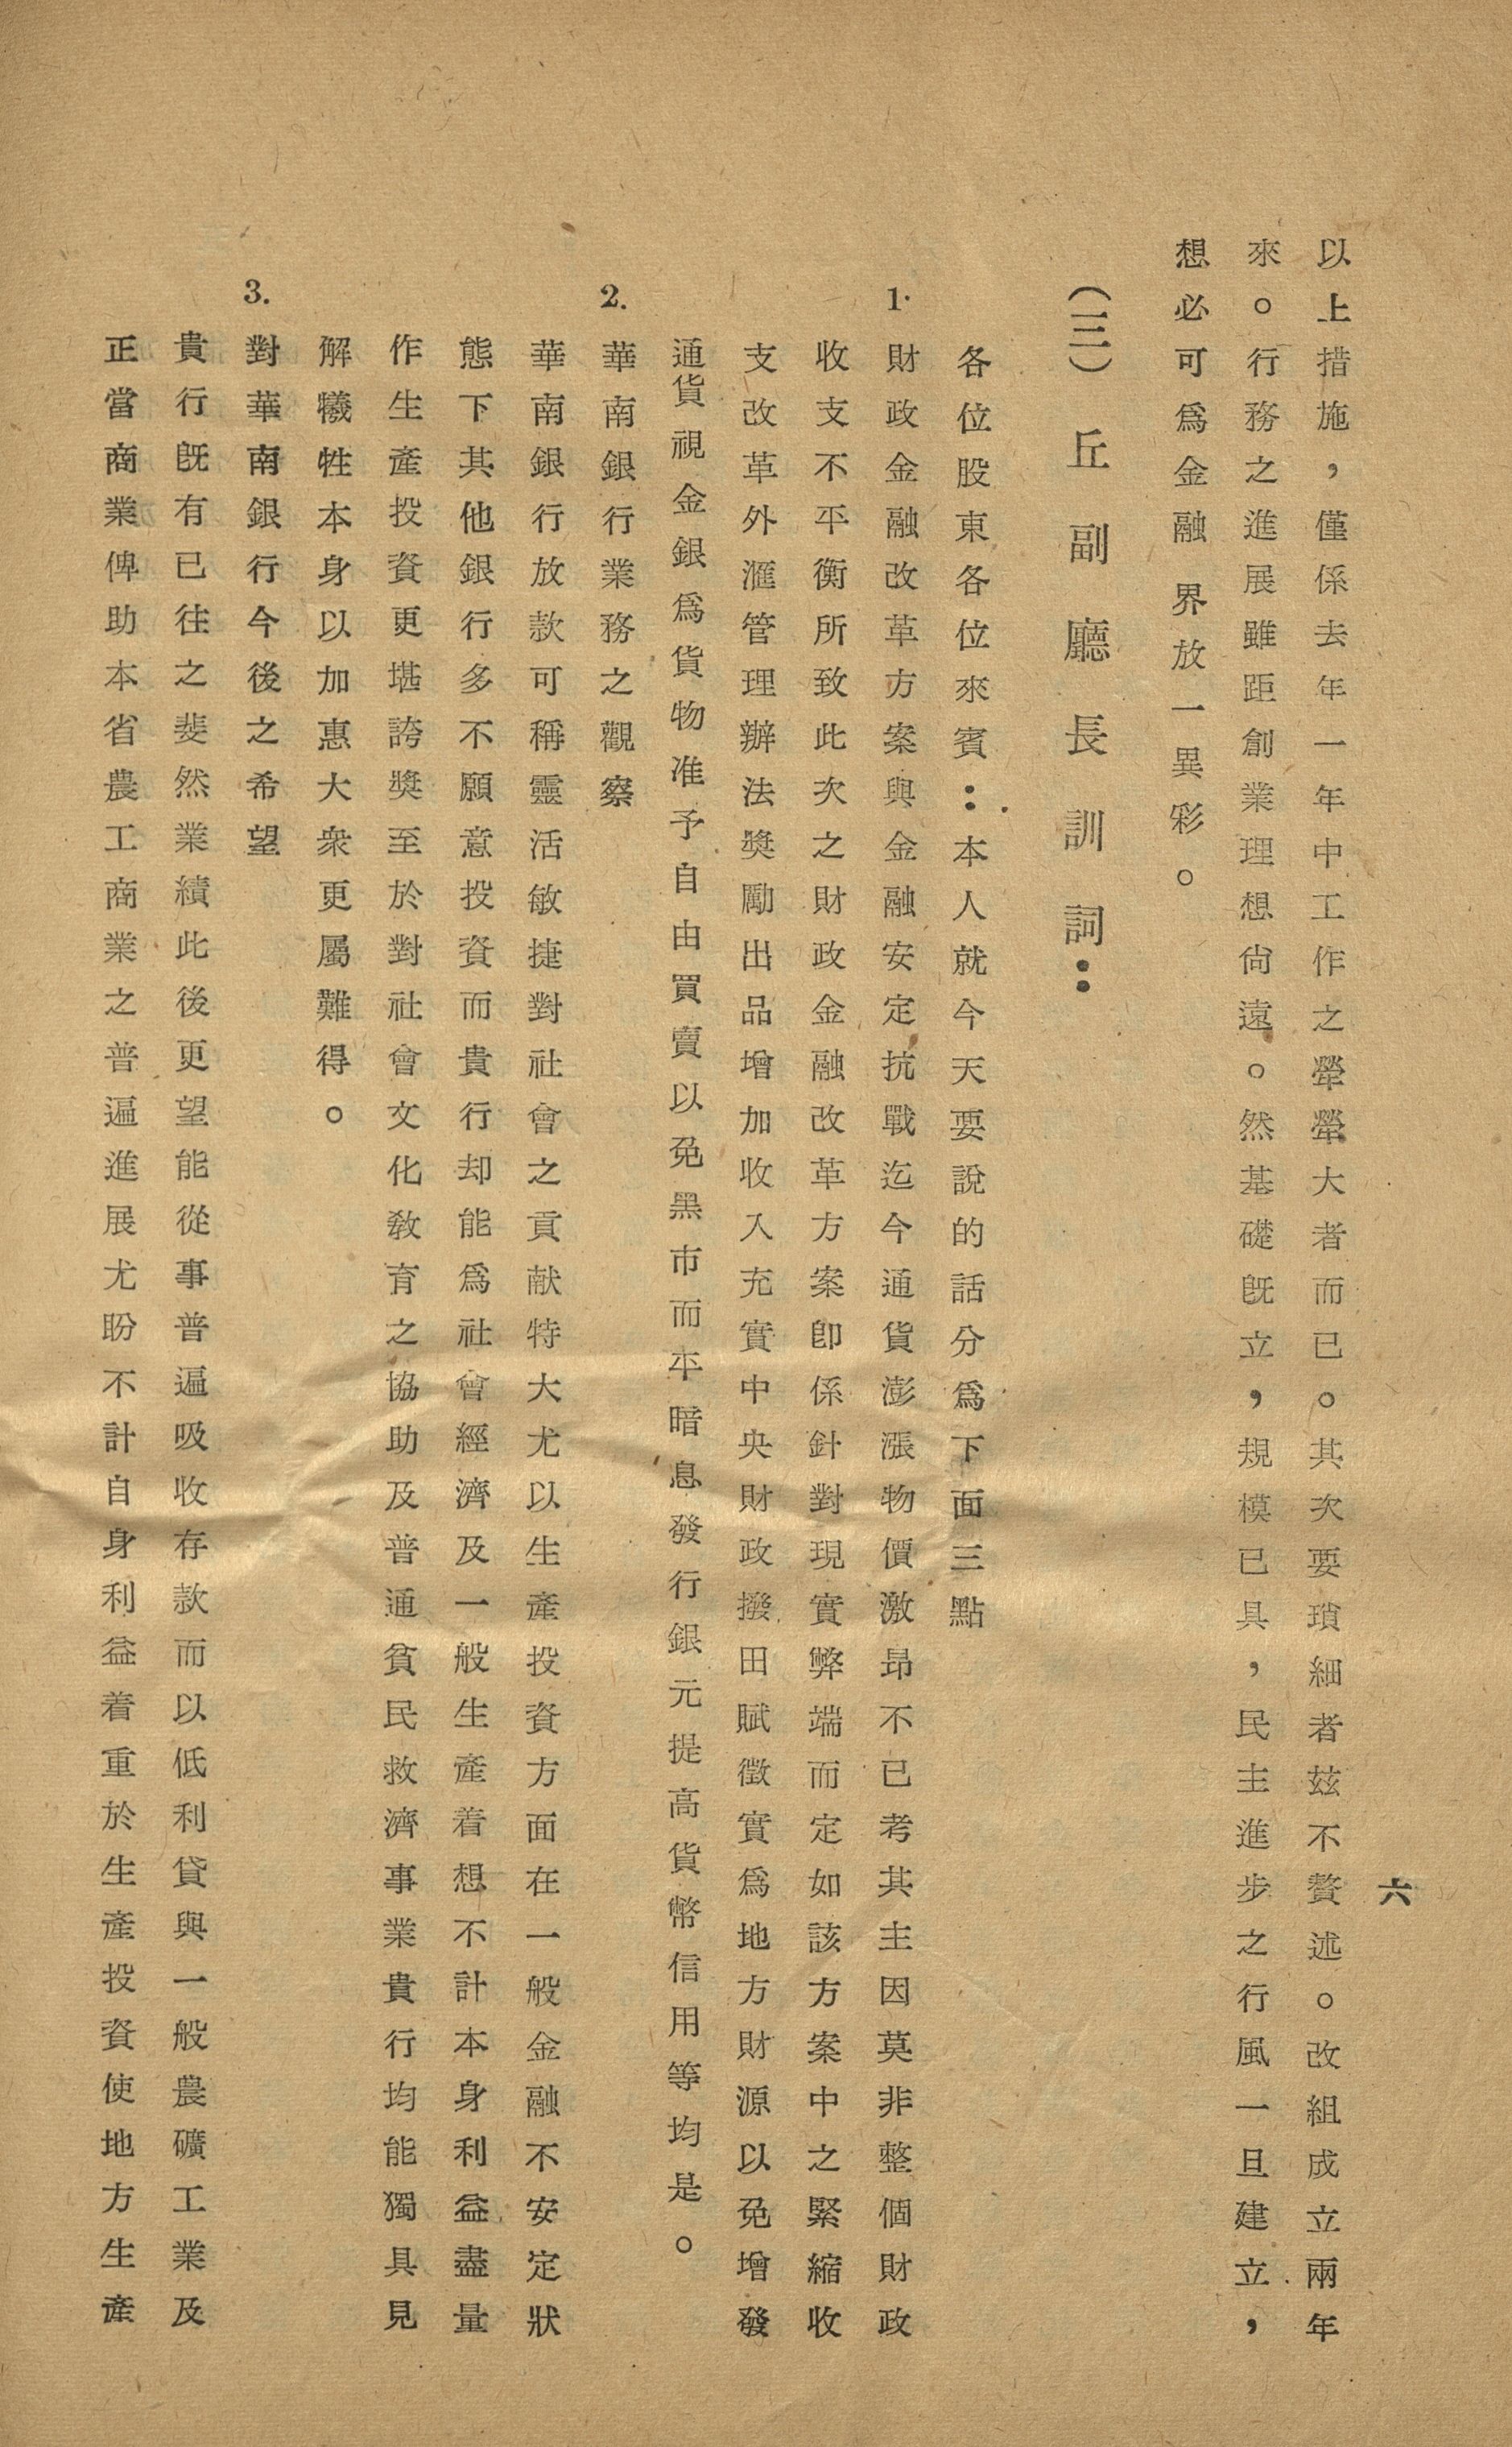 六
以上措施，僅係去年一年中工作之犖犖大者而已。其次要瑣細者玆不贅述。改組成立兩年
來。行務之進展雖距創業理想尙遠。然基礎旣立，規模已具，民主進步之行風一旦建立，
想必可爲金融界放一異彩。
（三）丘副廳長訓詞：
各位股東各位來賓：本人就今天要說的話分爲下面三點
1. 財政金融改革方案與金融安定抗戰迄今通貨澎漲物價激昂不已考其主因莫非整個財政
收支不平衡所致此次之財政金融改革方案卽係針對現實弊端而定如該方案中之緊縮收
支改革外滙管理辦法奬勵出品增加收入充實中央財政撥田賦徵實爲地方財源以免增發
通貨視金銀爲貨物准予自由買賣以免黑市而平暗息發行銀元提高貨幣信用等均是。
2. 華南銀行業務之觀察
華南銀行放款可稱靈活敏捷對社會之貢献特大尤以生產投資方面在一般金融不安定狀
態下其他銀行多不願意投資而貴行却能爲社會經濟及一般生產着想不計本身利益盡量
作生產投資更堪誇奬至於對社會文化敎育之協助及普通貧民救濟事業貴行均能獨具見
解犧牲本身以加惠大衆更屬難得。
3. 對華南銀行今後之希望
貴行旣有已往之斐然業績此後更望能從事普遍吸收存款而以低利貸與一般農礦工業及
正當商業俾助本省農工商業之普遍進展尤盼不計自身利益着重於生產投資使地方生產